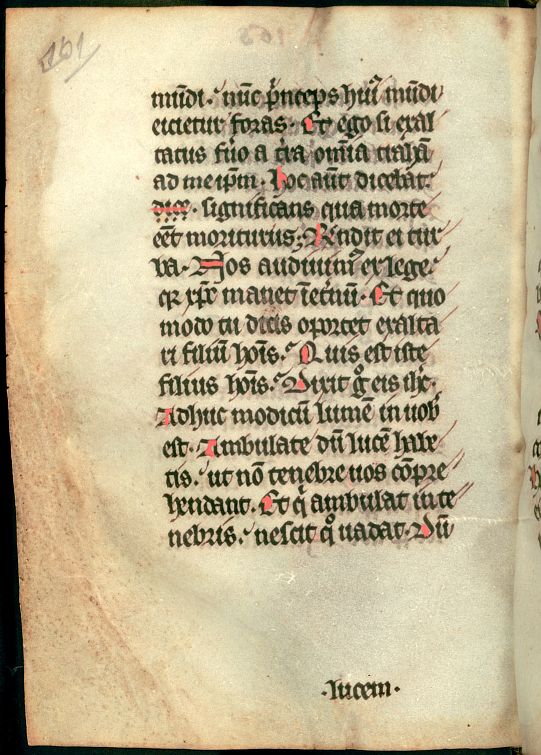 161
mūdi. nūc p̄nceps huiꝰ mūdi
eicietur foras. Et ego si exal
tatus fủo a t̄ra om̄ia trahā
ad me ip̄m. hoc aut̄ dicebat.
significans qua morte
eēt moriturus; R̄ndit ei tur
ba. Nos audiuimꝰ ex lege.
qꝛ xp̄c manet ī et̄nū. Et quo
modo tu dicis oportet exalta
ri filiū hoīs. Quis est iste
filius hoīs. Dixit gͦ eis ih̄c.
Adhuc modicū lumē in uob̄
est. Ambulate dū lucē habe
tis. ut nō tenebre uos cōpre
hendant. Et qͥ ambulat in te
nebris. nescit qͦ uadat. Dū
.lucem.